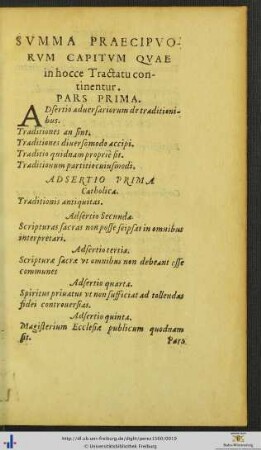 SVMMA PRAECIPVO-
RVM CAPITVM QVAE
in hocce Tractatu con-
tinentur.
PARS PRIMA.
ADsertio aduersariorum de traditioni-
bus.
Traditiones an sint.
Traditiones diuersomodo accipi.
Traditio quidnam propriè sit.
Traditionum partitio cuiusmodi.
ADSERTIO PRIMA
Catholica.
Traditionis antiquitas.
Adsertio Secunda.
Scripturas sacras non posse seipsas in omnibus
interpretari.
Adsertio tertia.
Scripturæ sacræ vt omnibus non debeant esse
communes
Adsertio quarta.
Spiritus priuatus vt non sufficiat ad tollendas
fidei controuersias.
Adsertio quinta.
Magisterium Ecclesiæ publicum quodnam
sit.
Pars
© Universitätsbibliothek Freiburg